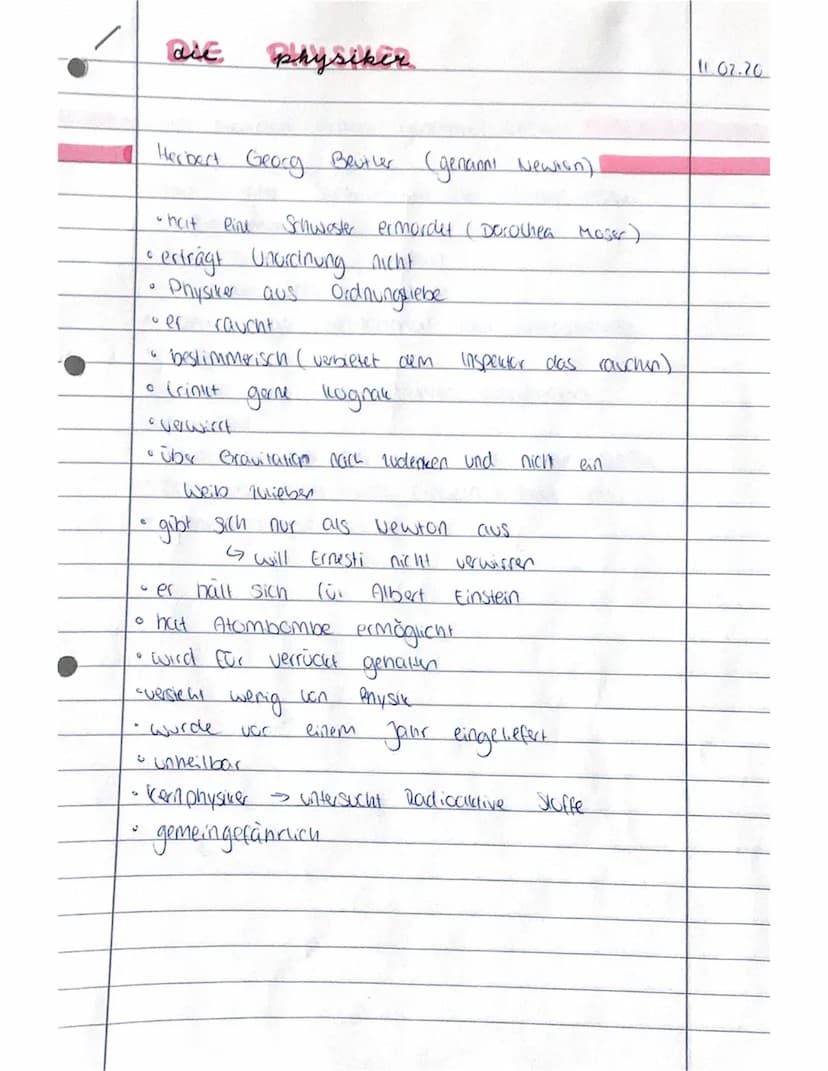 DIE PHYSIKER
die physiker
11.02.20
Herbert Georg Beutler (genannt Newton)
• hat eine Schwester ermordet (Dorothea Moser)
• erträgt Unordnung nicht
• Physiker aus Ordnungsliebe
• er raucht
• bestimmerisch (verbietet dem Inspektor das rauchen)
• trinkt gerne Kognak
• verwirrt
• über Gravitation nach zudenken und nicht ein
Weib zulieben
• gibt sich nur als Newton aus
↳ will Ernesti nicht verwirren
• er hält sich für Albert Einstein
• hat Atombombe ermöglicht
• wird für verrückt gehalten
• versteht wenig von Physik
• wurde vor einem Jahr eingeliefert
• unheilbar
• Kernphysiker → untersucht Radioaktive Stoffe
• gemeingefährlich